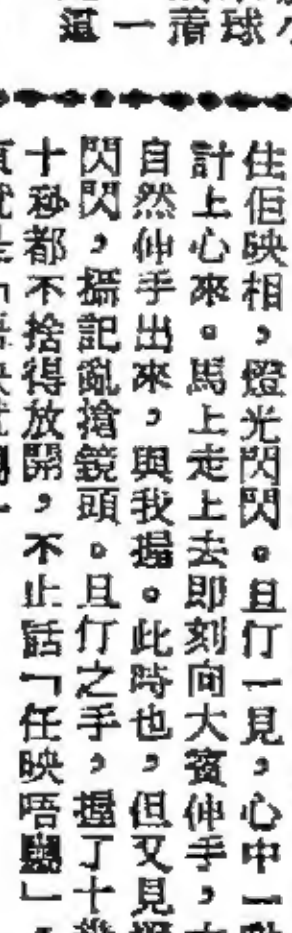 球
着
一
這
住佢映相,燈光閃閃。且仃一見,心中一動
計上心來。馬上走上去即刻向大賓伸手,大
自然伸手出來,與我握。此時也,但又見
閃閃,攝記亂搶鏡頭。且仃之手,握了十幾
十秒都不捨得放開,不止話「任映唔嬲」,